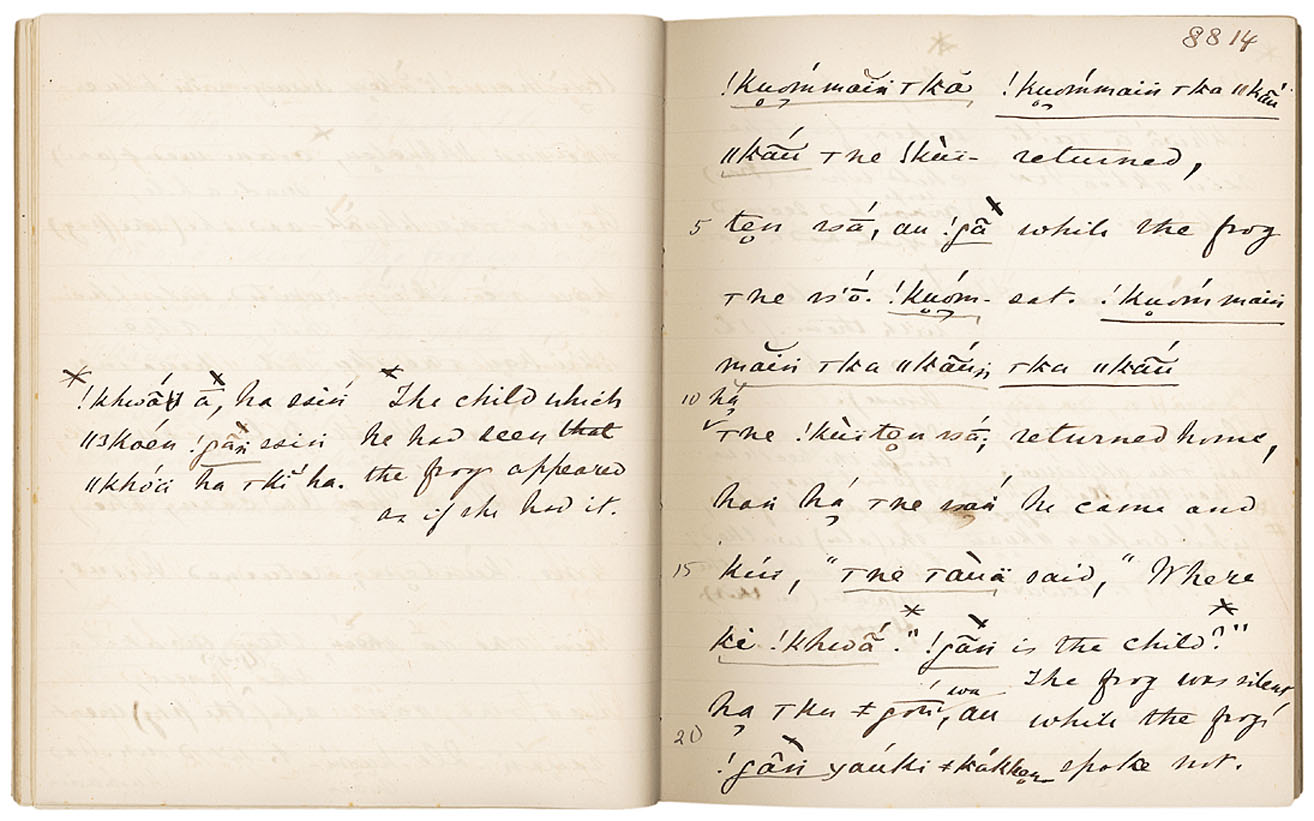 !khwā́ ā, ha ssiń The child which
ǁ3kóén !gā̃n ssin he had seen that
ǁkhóä ha ꞇkĭ ha. the frog appeared
as if she had it.
8814
!kuóḿmăin ꞇkă !kuóḿmain ꞇka ǁkā́ŭ
ǁkāú ꞇne ǃkùï- returned,
5 tẹn ssā́, au !gā̃ while the frog
ꞇne ssṓ. !kuóm- sat. !kuóḿmain
măin ꞇka ǁkāú, ꞇka ǁkāú
10 hạ́
ꞇne !kùïtẹn ssā́, returned home,
han hạ́ ꞇne ssā́ he came and
15 kúï, "ꞇne ꞇàùä said, "Where
kè !khwā́." !gā̃n is the child?"
hạ ꞇku ǂgóu, au The frog was silent
wa while the frog
20 !gā̃n yaúki ǂkákken spoke not.